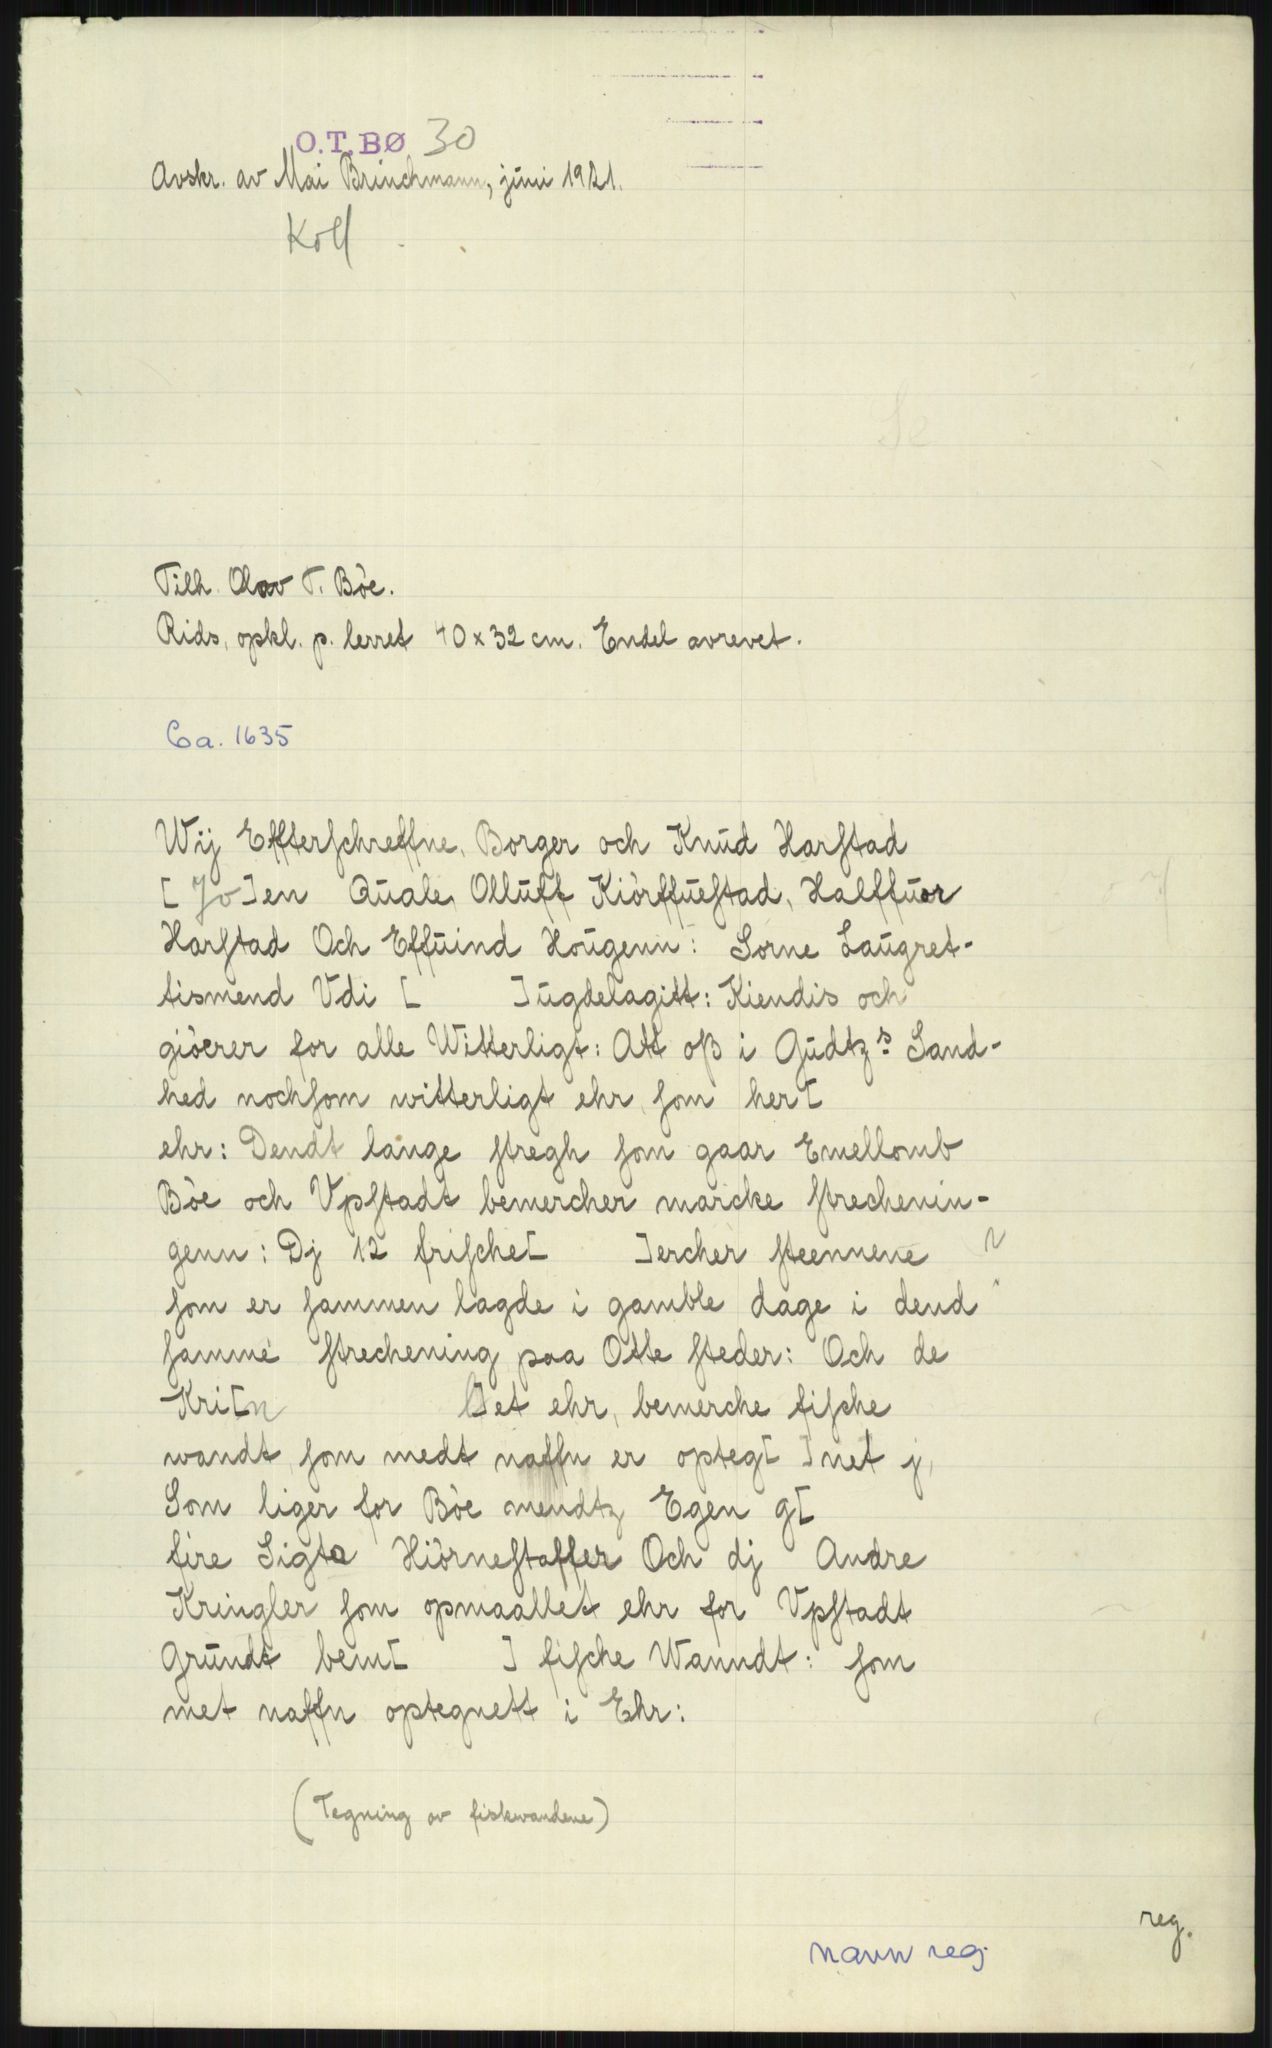 O.T. BØ 30
Avskr. av Mai Brinchmann, juni 1921.
Koll
Tilh. Olav T. Böe.
Rids, opkl. p. lerret 40 x 32 cm. Endel avrevet.
Ca. 1635
Wij Effterſchreffne, Borger och Knud Harſtad
[Jo]en Quale, Olluff Kiörffueſtad, Halffuor
Harſtad Och Effuind Hougenn: Sorne Laugret-
tismend Vdi [ ]ugdelagitt: Kiendis och
giöerer for alle Witterligt: Att oß i Gudtzs Sand-
hed nochſom witterligt ehr, ſom her[
ehr: Dendt lange ſtregh ſom gaar Emellomb
Böe och Vpſtadt bemercher marcke ſtrechenin-
genn: Dj 12 friſche[ ]ercher ſteennene
ſom er ſammen lagde i gamble dage i dend
ſamme ſtrechening paa Otte ſteder: Och de
Kri[n ]et ehr, bemerche fiſche
wandt, ſom medt naffn er opteg[ ]net j,
Som liger for Böe mendtz Egen g[
fire Sigta Hiörneſtaffer Och dj Andre
Kringler ſom opmaallet ehr for Vpſtadt
Grundt bem[ ] fiſche Wanndt: ſom
met naffn optegnett i Ehr:
(Tegning av fiskevandene)
reg.
navn reg.